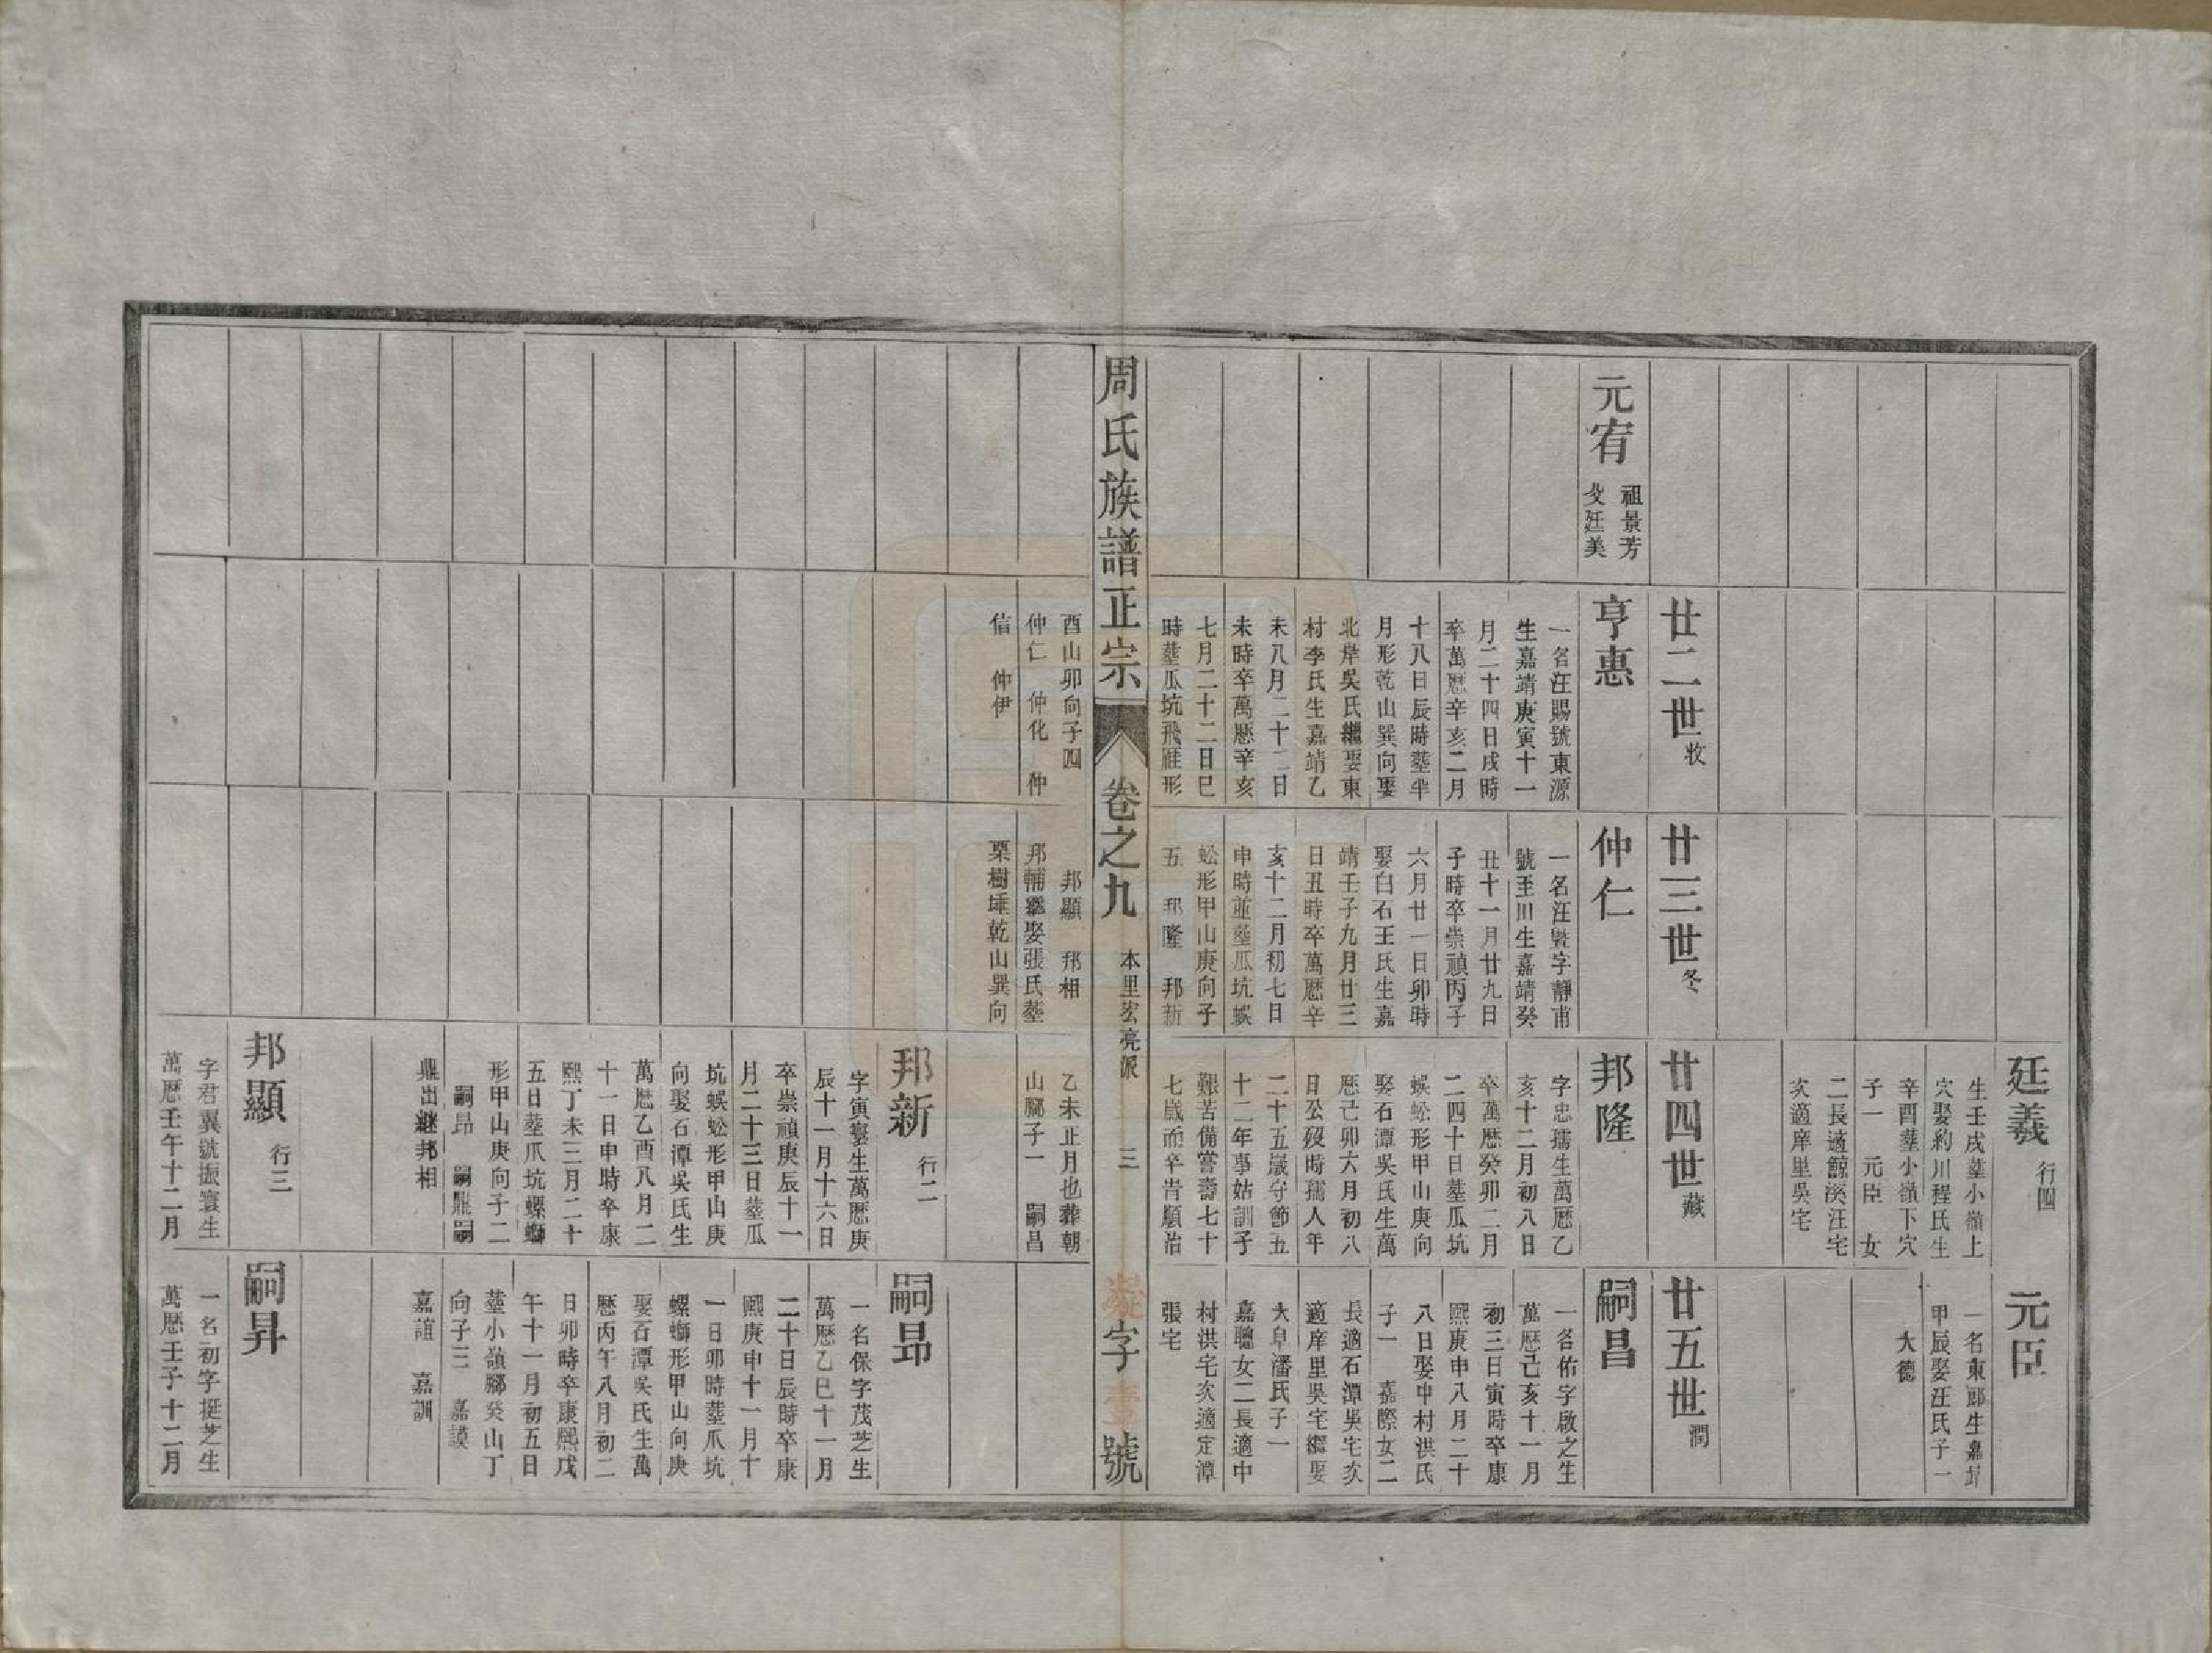 廷義 行四
生壬戌塟小嶺上
穴娶約川程氏生
辛酉塟小嶺下穴
子一 元臣 女
二長適鯨溪汪宅
次適庠里吳宅
元臣
一名東郎生嘉靖
甲辰娶汪氏子一
大德
廿二世 收
廿三世 冬
廿四世 藏
廿五世 潤
元宥 祖景芳
父廷美
亨惠
一名汪賜號東源
生嘉靖庚寅十一
月二十四日戌時
卒萬歷辛亥二月
十八日辰時塟半
月形乾山巽向娶
北岸吳氏繼娶東
村李氏生嘉靖乙
未八月二十二日
未時卒萬歷辛亥
七月二十二日巳
時塟瓜坑飛雁形
仲仁
一名汪暨字靜甫
號至川生嘉靖癸
丑十一月廿九日
子時卒崇禎丙子
六月廿一日卯時
娶白石王氏生嘉
靖壬子九月廿三
日丑時卒萬歷辛
亥十二月初七日
申時並塟瓜坑蜈
蚣形甲山庚向子
五 邦隆 邦新
邦隆
字忠孺生萬歷乙
亥十二月初八日
卒萬歷癸卯二月
二四十日塟瓜坑
蜈蚣形甲山庚向
娶石潭吳氏生萬
歷己卯六月初八
日公歿時孺人年
二十五嵗守節五
十二年事姑訓子
艱苦備嘗壽七十
七嵗而卒皆順治
嗣昌
一名佑字啟之生
萬歷己亥十一月
初三日寅時卒康
熙庚申八月二十
八日娶中村洪氏
子一 嘉際女二
長適石潭吳宅次
適庠里吳宅繼娶
大阜潘氏子一
嘉聰女二長適中
村洪宅次適定潭
張宅
周氏族譜正宗 卷之九 本里宏亮派 三 凝字壹號
酉山卯向子四
仲仁 仲化 仲
信 仲伊
邦顯 邦相
邦輔繼娶張氏塟
栗樹埂乾山巽向
乙未正月也葬朝
山腳子一 嗣昌
邦新 行二
字寅寰生萬歷庚
辰十一月十六日
卒崇禎庚辰十一
月二十三日塟瓜
坑蜈蚣形甲山庚
向娶石潭吳氏生
萬歷乙酉八月二
十一日申時卒康
熙丁未三月二十
五日塟爪坑螺螄
形甲山庚向子二
嗣昂 嗣鼎嗣
鼎出繼邦相
嗣昂
一名保字茂芝生
萬歷乙巳十一月
二十日辰時卒康
熙庚申十一月十
一日卯時塟爪坑
螺螄形甲山向庚
娶石潭吳氏生萬
歷丙午八月初二
日卯時卒康熙戊
午十一月初五日
塟小嶺腳癸山丁
向子三 嘉謨
嘉誼 嘉訓
邦顯 行三
字君翼號振寰生
萬歷壬午十二月
嗣昇
一名初字挺芝生
萬歷壬子十二月